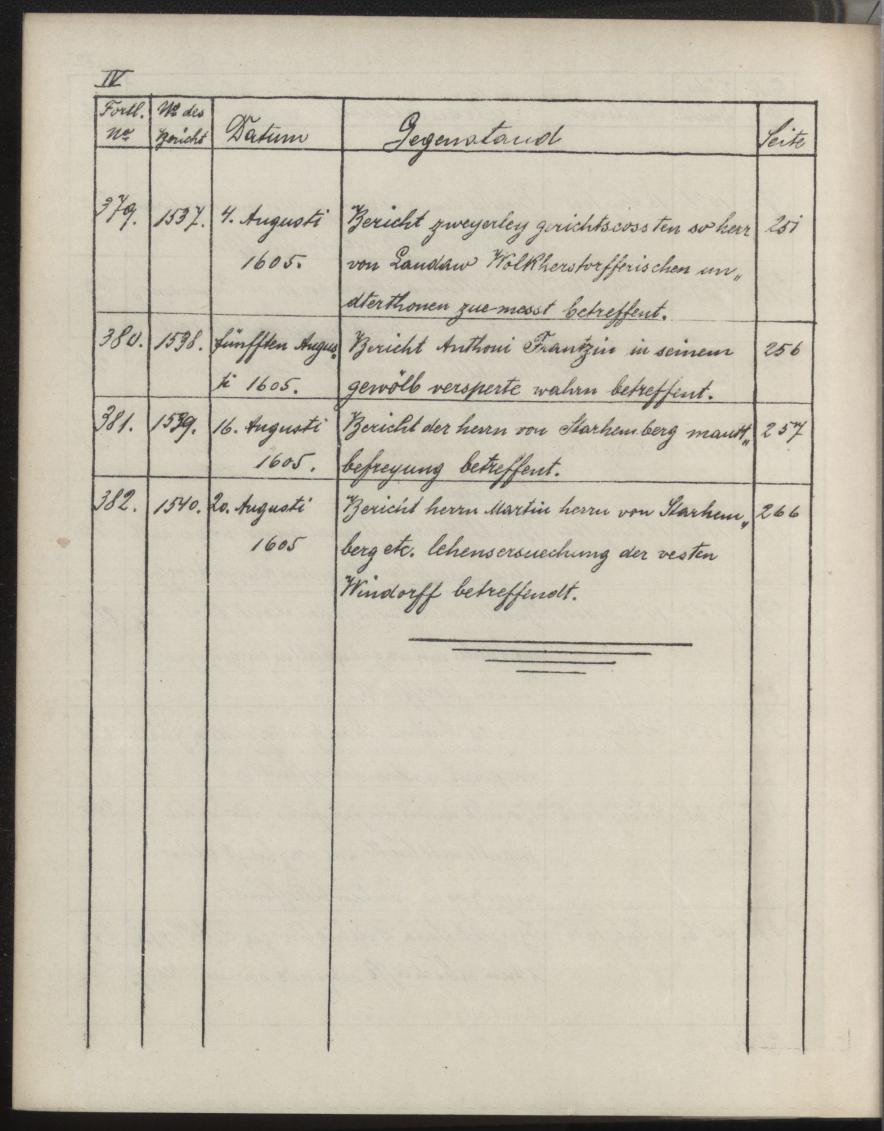 IV
Fortl. No des Datum Gegenstand Seite
No Bericht
379. 1537. 4. Augusti Bericht zweyerley gerichtscossten so herr 251
1605. von Landaw Wolkherstorfferischen un„
dterthonen zue messt betreffent.
380. 1538. fünfften Augus„ Bericht Anthoni Frantzin in seinem 256
ti 1605. gewölb versperte wahrn betreffent.
381. 1539. 16. Augusti Bericht der herrn von Starhemberg mautt„ 257
1605. befreyung betreffent.
382. 1540. 20. Augusti Bericht herrn Martin herrn von Starhem„ 266
1605 berg etc. lehensersuechung der vesten
Windorff betreffendt.